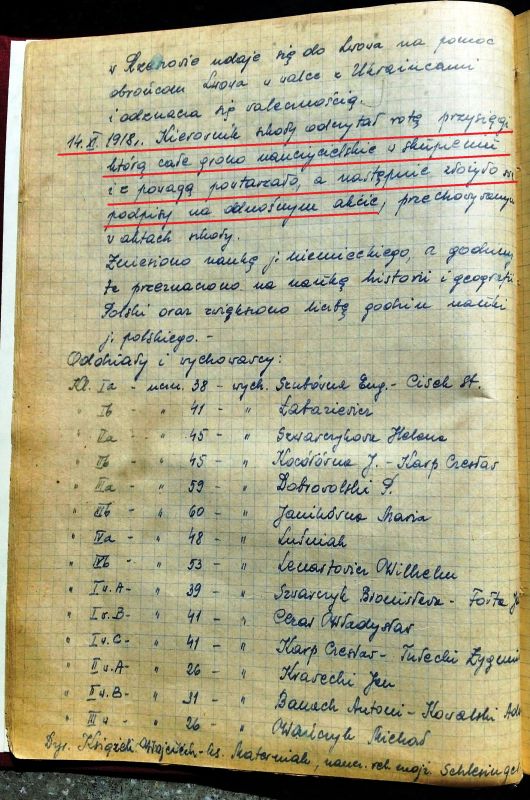 w Rzeszowie udaje się do Lwowa na pomoc
obrońcom Lwowa w walce z Ukraińcami
i odznacza się walecznością.
14.XI.1918r. Kierownik szkoły odczytał rotę przysięgi
którą całe grono nauczycielskie w skupieniu
i z powagą powtarzało, a następnie złożyło
podpisy na odnośnym akcie, przechowywanym
w aktach szkoły.
Zniesiono naukę j. niemieckiego, a godziny
te przeznaczono na naukę historii i geografii
Polski oraz zwiększono liczbę godzin nauki
j. polskiego. -
Oddziały i wychowawcy:
Kl. Ia - ucz. 38 - wych. Szubówna Eug. - Cisch St.
" Ib - " 41 - " Łabaziewicz
" IIa - " 45 - " Szwarczykowa Helena
" IIb - " 45 - " Kocółówna J. - Karp Czesław
" IIIa - " 59 - " Dobrowolski P.
" IIIb - " 60 - " Janikówna Maria
" IVa - " 48 - " Luśniak
" IVb - " 53 - " Lenartowicz Wilhelm
" I w.A - " 39 - " Szwarczyk Bronisława -
" I w.B - " 41 - " Czras Władysław
" I w.C - " 41 - " Karp Czesław - Tułecki Zygmu
" II w.A - " 26 - " Krawecki Jan
" II w.B - " 31 - " Banach Antoni - Kowalski Ada
" III w - " 26 - " Wańczyk Michał
Dyr. Książek Wojciech - ks. Materniak, naucz. rel. mojż. Schlesinger